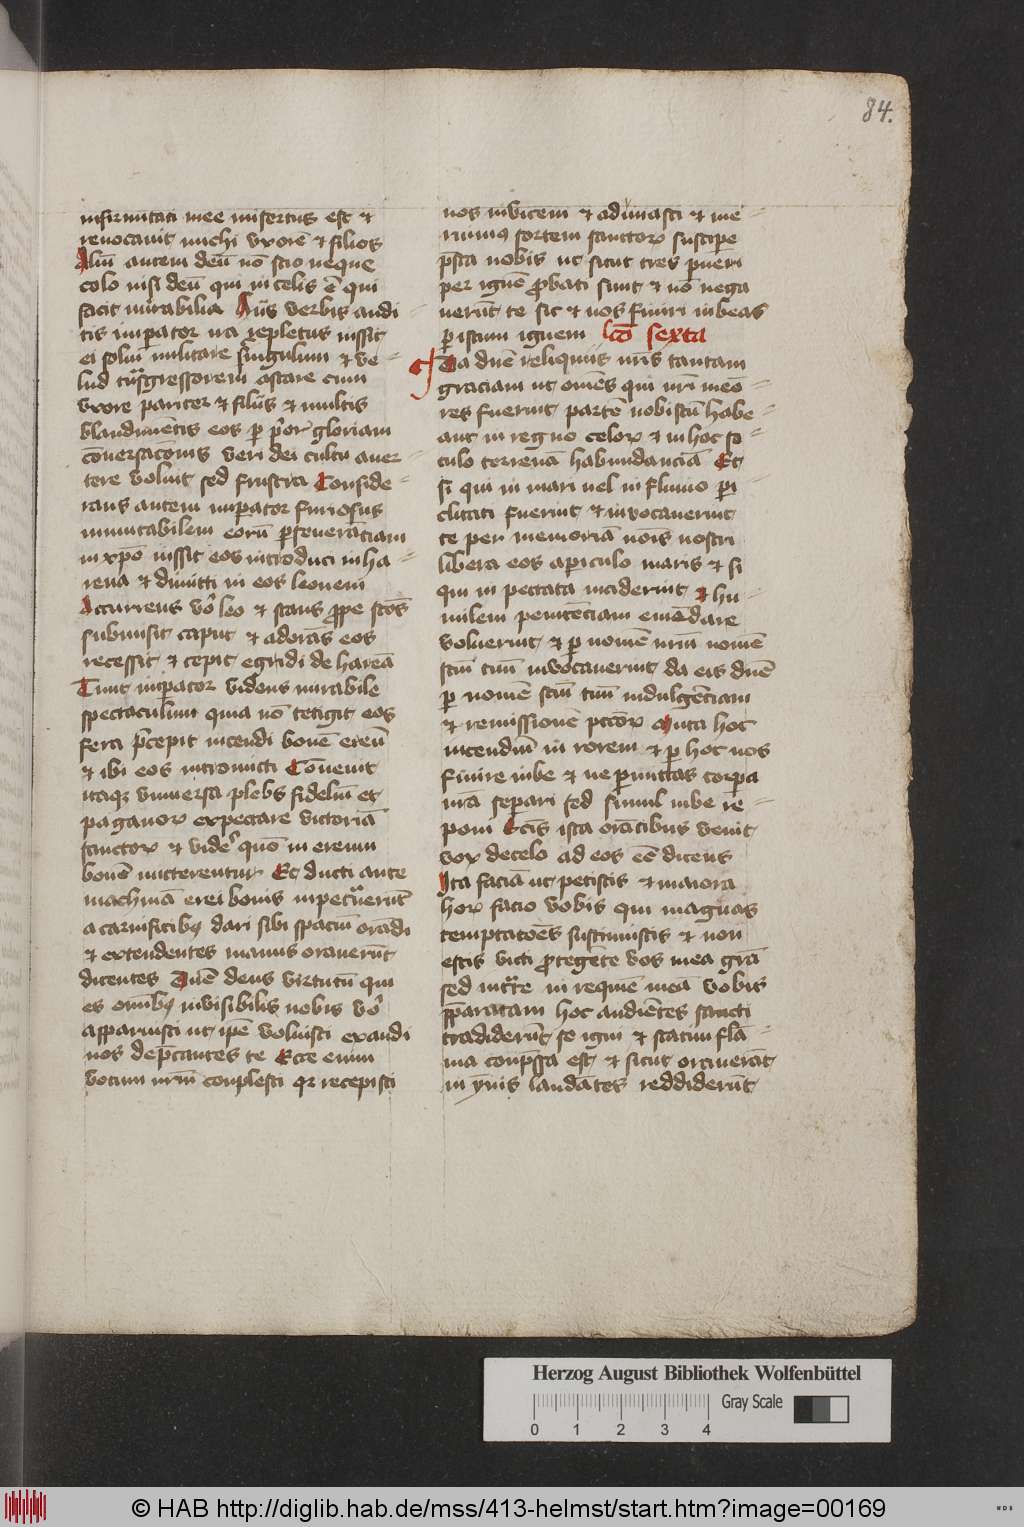 84.
infirmitati mee misertus est et
reuocauit michi vxorē et filios
Aliū autem deū nō scio neque
colo nisi deū qui in celis ē qui
facit mirabilia Hiis verbis audi
tis impator ira repletus iussit
ei solui militare singulum et ve
lud tnsgressorem astare cum
vxore pariter et filiis et multis
blandimētis eos p por gloriam
cōuersacōnis veri dei cultu auer
tere voluit sed frustra Conside
rans autem impator furiosus
inmutabilem eorū pseuerāciam
in xpō iussit eos introduci in ha
rena et dimitti in eos leonem
Accurrens vō leo et stans ppe scōs
submisit caput et adoras eos
recessit et cepit egredi de hareā
Tunc impator videns mirabile
spectaculum quia nō tetigit eos
fera pcepit incendi bouē ereū
et ibi eos intromitti Cōuenit
itaque vniuersa plebs fideliū et
paganor expectare victoriā
sanctor et vide quō in ereum
bouē mitterentur Et ducti ante
machinā erei bouis inpetuerūt
a carnificibus dari sibi spaciū orādi
et extendentes manus orauerūt
dicentes Dnē deus virtutū qui
es omībus inuisibilis nobis vō
apparuisti ut ipē voluisti exaudi
nos depcantes te Ecce enim
votum nrm conplesti qr recepisti
nos inuicem et adunasti et me
ruimus sortem sanctor suscipe
psta nobis ut sicut tres pueri
per ignē probati sunt et nō nega
uerūt te sic et nos finiri iubeas
p istum ignem lcō sexta
Da dnē reliquiis nris tantam
graciam ut omēs qui nri meō
res fuerint partē nobiscū habe
ant in regno celor et in hoc se
culo terrenā habundanciā Et
si qui in mari uel in flumio pi
clitati fuerint et inuocauerint
te per memoriā nōis nostri
libera eos a periculo maris et si
qui in peccata inciderint et hu
milem penitēciam emēdare
voluerint et p nomē nrm nomē
scm tuū inuocauerint da eis dnē
p nomē scm tuū indulgēciam
et remissionē pccōr Muta hoc
incendiū in rorem et p hoc nos
finire iube et ne pmittas corpa
nrā separi sed simul iube re
poni Ecis ista orācibus venit
vox de celo ad eos eē dicens
Ita faciā ut petistis et maiora
hor facio vobis qui magnas
temptatoēs sustinuistis et non
estis victi protegēte vos mea grā
sed intte in requiē meā vobis
pparatam hoc audiētes sancti
tradiderūt se igni et statim flā
ma conpssa est et sicut orauerāt
in ymis laudātes reddiderūt
Herzog August Bibliothek Wolfenbüttel
Gray Scale
0 1 2 3 4
© HAB http://diglib.hab.de/mss/413-helmst/start.htm?image=00169